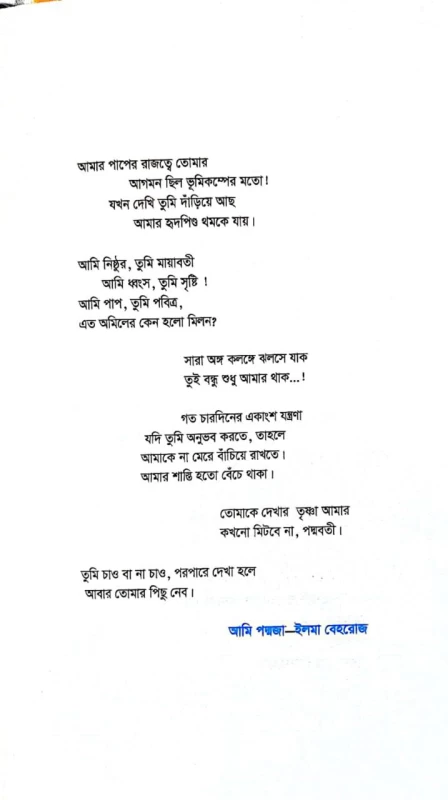 আমার পাপের রাজত্বে তোমার
আগমন ছিল ভূমিকম্পের মতো!
যখন দেখি তুমি দাঁড়িয়ে আছ
আমার হৃদপিণ্ড থমকে যায়।
আমি নিষ্ঠুর, তুমি মায়াবতী
আমি ধ্বংস, তুমি সৃষ্টি !
আমি পাপ, তুমি পবিত্র,
এত অমিলের কেন হলো মিলন?
সারা অঙ্গ কলঙ্গে ঝলসে যাক
তুই বন্ধু শুধু আমার থাক...!
গত চারদিনের একাংশ যন্ত্রণা
যদি তুমি অনুভব করতে, তাহলে
আমাকে না মেরে বাঁচিয়ে রাখতে।
আমার শাস্তি হতো বেঁচে থাকা।
তোমাকে দেখার তৃষ্ণা আমার
কখনো মিটবে না, পদ্মবতী।
তুমি চাও বা না চাও, পরপারে দেখা হলে
আবার তোমার পিছু নেব।
আমি পদ্মজা—ইলমা বেহরোজ